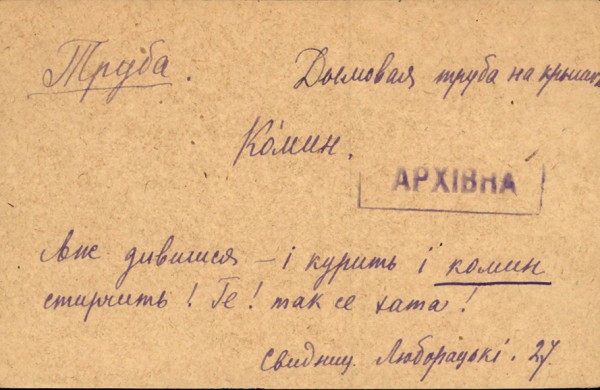 Труба. Дымовая труба на крышах
Комин.
АРХІВНА
Аж дивишся – і курить і комин
стирчить! Ге! так се хата!
Свидниц. Люборацькі. 27